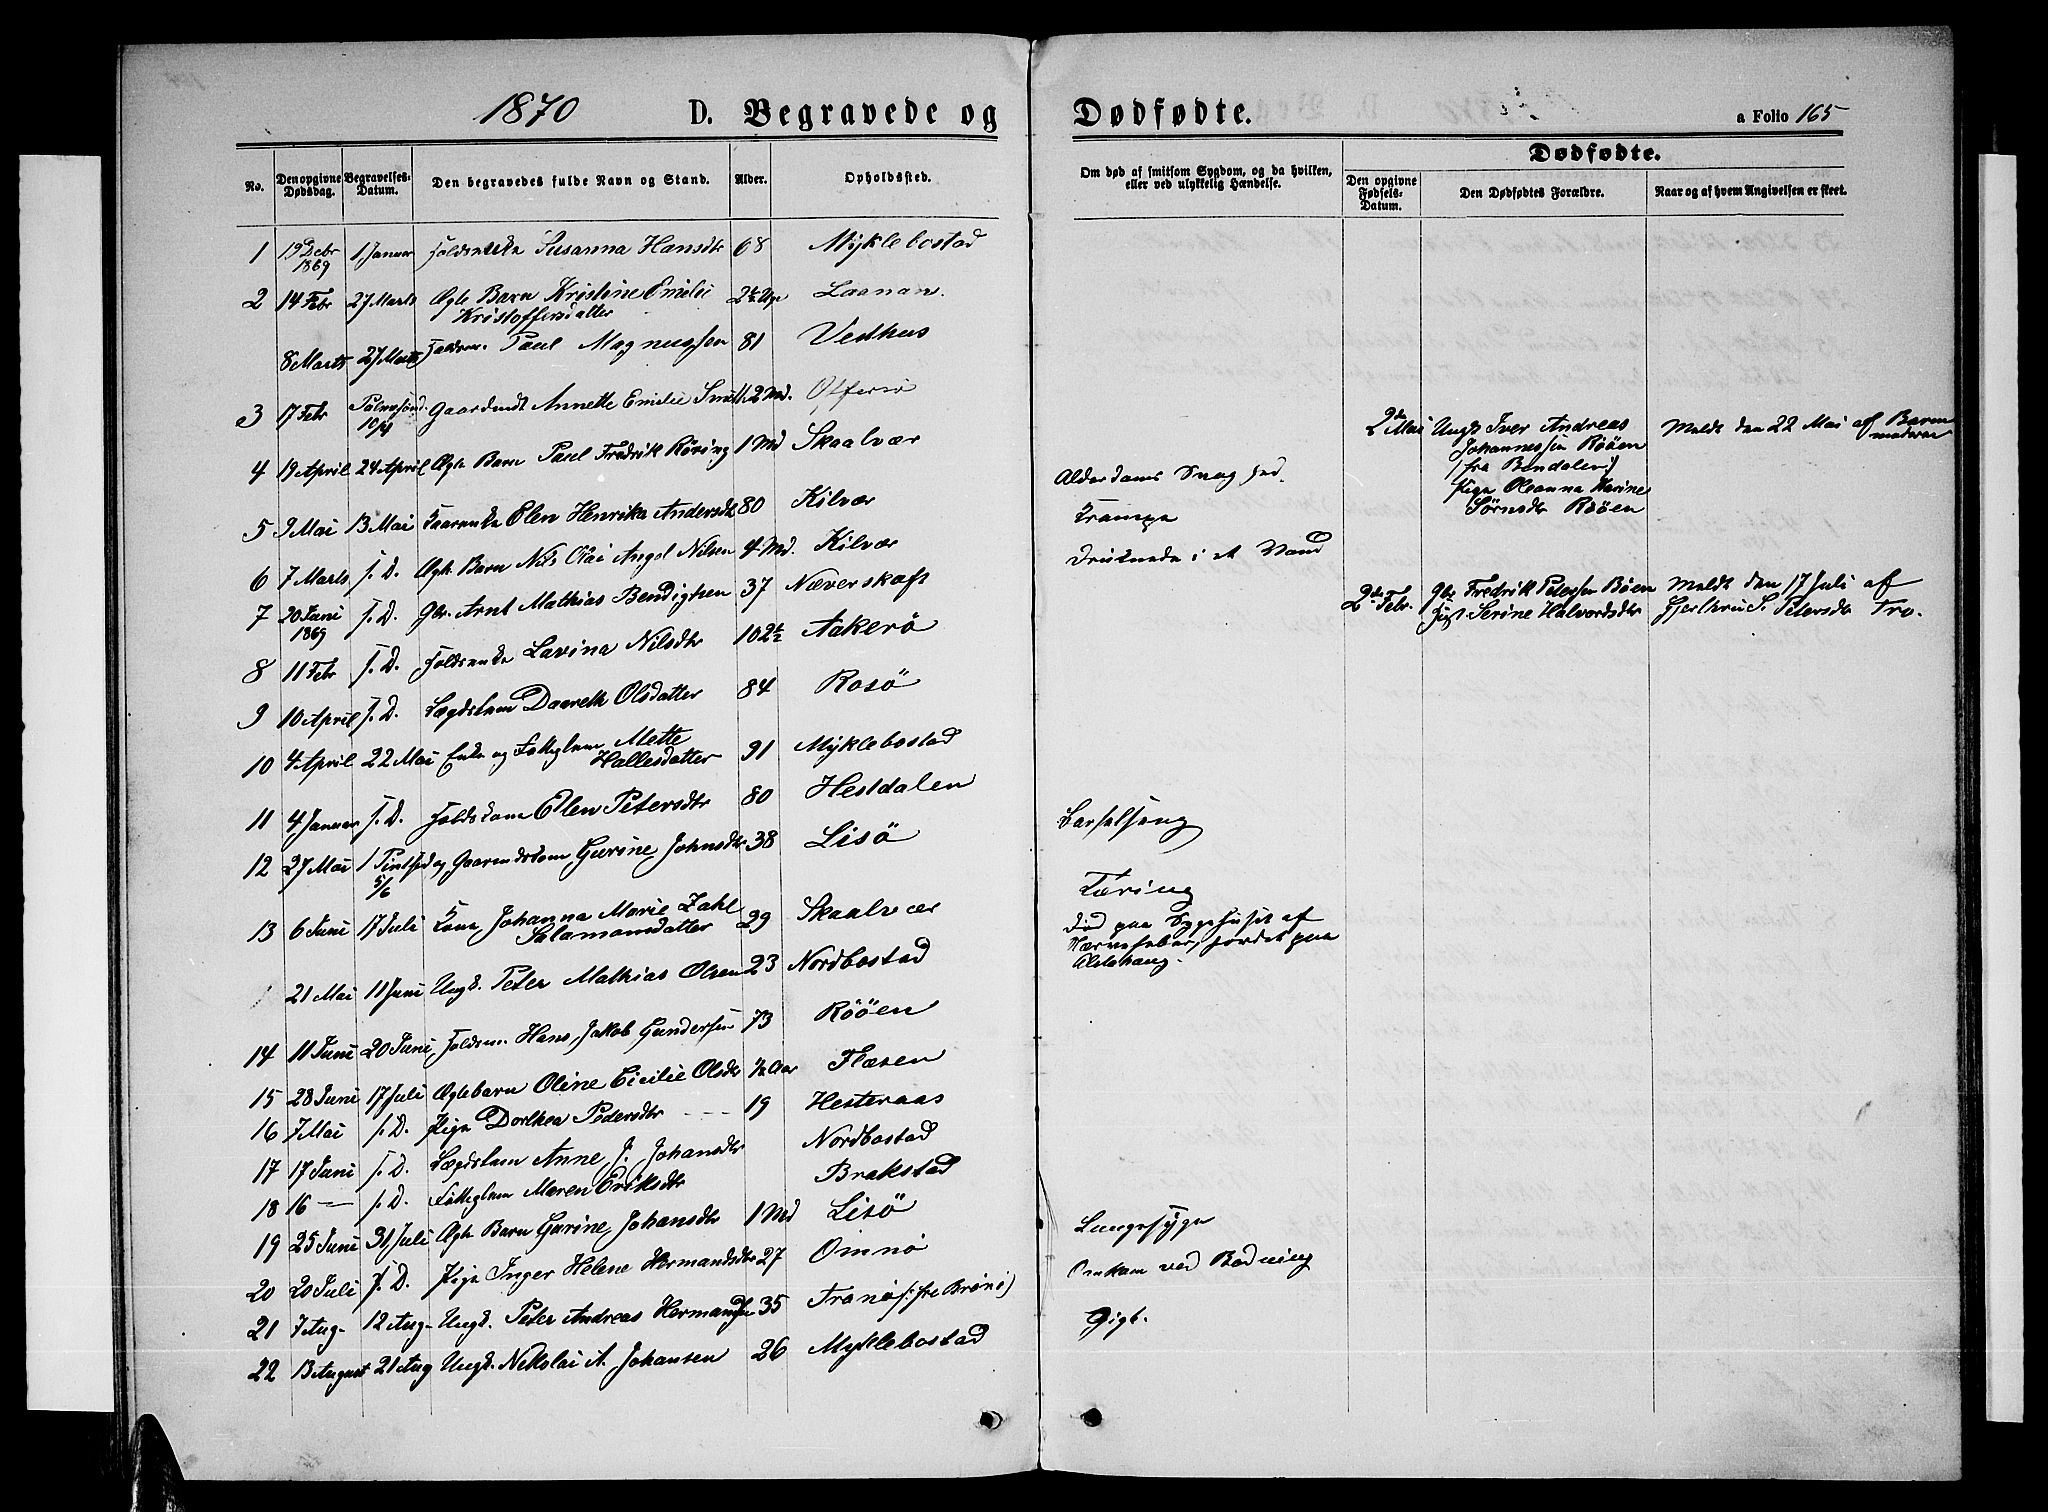 1870 D. Begravede og Dødfødte. a Folio 165
No. Den opgivne Dødsdag. Begravelses-Datum. Den begravedes fulde Navn og Stand. Alder. Opholdssted.
Om død af smitsom Sygdom, og da hvilken, eller ved ulykkelig Hændelse.
Dødfødte.
Den opgivne Fødsels-Datum. Den Dødfødtes Forældre. Naar og af hvem Angivelsen er skeet.
1 19 Debr 1869 1 Januar Susanna Hansdtr 68 Myklebostad
2 14 Febr 27 Marts Ægte Barn Kristine Emilie Kristoffersdatter Laanan
8 Marts 27 Marts Foldem. Paul Magnussen 81 Vedhus
3 17 Febr Palmesønd 10/4 Annette Emilie 2 Md. Offersø
4 19 April 24 April Ægte Barn Paul Fredrik Røring 1 Md Skaalvær
5 9 Mai 13 Mai Elen Henrika Andersdtr 80 Kilvær
6 7 Marts s. D. Ægte Barn Nils Olai Angel Nilsen 4 Md. Kilvær
7 20 Juni 1869 s. D. Gbr. Arnt Mathias Bendigtsen 37 Næverskaft
8 11 Febr s. D. Lavina Nilsdtr 102½ Aakerø
9 10 April s. D. Lægdslem Daareth Olsdatter 84 Rosø
10 4 April 22 Mai Enke og Fattiglem Mette Hallesdatter 91 Myklebostad
11 4 Januar s. D. Elen Petersdtr 80 Hestdalen
12 27 Mai 1 Pintsedag 5/6 Gurine Johnsdtr 38 Lisø
13 6 Juni 17 Juli Kone Johanna Marie Zahl Salamonsdatter 29 Skaalvær
21 Mai 11 Juni Ungk. Peter Mathias Olsen 23 Nordbostad
14 11 Juni 20 Juni Foldem. Hans Jakob Gundersen 73 Røøen
15 28 Juni 17 Juli Ægtebarn Oline Cicilie Olsdtr ½ Aar Flæsen
16 7 Mai s. D. Pige Dorthea Pedersdtr 19 Hesteraas
17 17 Juni s. D. Lægdslem Anne J. Johansdtr Nordbostad
18 16 — s. D. Fattiglem Maren Eriksdtr Brakstad
19 25 Juni 31 Juli Ægte Barn Gurine Johansdtr 1 Md Lisø
20 20 Juli s. D. Pige Inger Helene Hermandsdtr 27 Omnø
21 7 Aug. 12 Aug. Ungk. Peter Andreas Hermandsen 35 Tranø (: fra Brønø)
22 13 August 21 Aug Ungk. Nikolai A. Johansen 26 Myklebostad
Alderdoms Svaghed.
Krampe
Druknede i et Vand
Barselseng
Tæring
Død paa Sygehuset af
Nervefeber, jordet paa
Alstahaug.
Lungesyge
Omkom ved Rodning
Gigt.
2de Mai Ungk. Iver Andreas
Johannessen Røøen
(fra Bindalen)
Pige Oleanna Karine
Sørnsdtr Røøen
Meldt den 22 Mai af Barne
moderen
2de Febr. Gbr. Fredrik Petersen Bøen
Serine Halvordsdtr
Meldt den 17 Juli af
S. Petersdtr Tro.